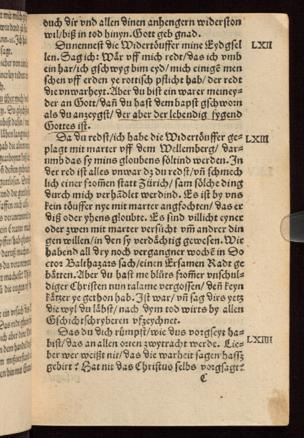 duch dir vnd allen dinen anhengern widerston
wil/biß in tod hinyn. Gott geb gnad.
Du nennest die Widertöuffer mine Eydgsel
len. Sag ich: Wår vff mich redt/das ich vmb
ein har/ich gschwyg bim eyd/mich einigē men
schen vff erden ye rottisch pflicht hab/der redt
die vnwarheyt. Aber du bist ein warer meiney-
der an Gott/dañ du hast dem bapst gschworn
als du anzeygst/der aber der lebendig fygend
Gottes ist.
Da du redst/ich habe die Widertöuffer ge-
plagt mit marter vff dem Wellemberg/ dar-
umb das sy mins gloubens söltind werden. In
der red ist alles vnwar dz du redst/vñ schmech
lich einer fromen statt Zürich/ sam sölche ding
durch mich verhädlet werdind. Es ist by vns
kein töuffer nye mit marter angfochten/das er
diß oder yhens gloubte. Es sind villicht eyner
oder zwen mit marter versůcht vm andrer din
gen willen/in den sy verdächtig gewesen. Wir
habend all dry noch vergangner wochē in Do
ctor Balthazars sach/einen Ersamen Radt ge
bätten. Aber du hast me blůts fromer vnschul-
diger Christen nun talame vergossen/deñ keyn
kätzer ye gethon hab. Ist war/vñ sag dirs yetz
die wyl du läbst/nach dym tod wirts by allen
Gschichtschryberen vfzeychnet.
Das du dich rümpst/wie dus vorgseyt ha-
bist/das an allen orten zwytracht werde. Lie-
ber wer weißt nit/das die warheit sagen hassz
gebirt? Hat nit das Christus selbs vorgsagt?
C
LXII
LXIII
LXIIII